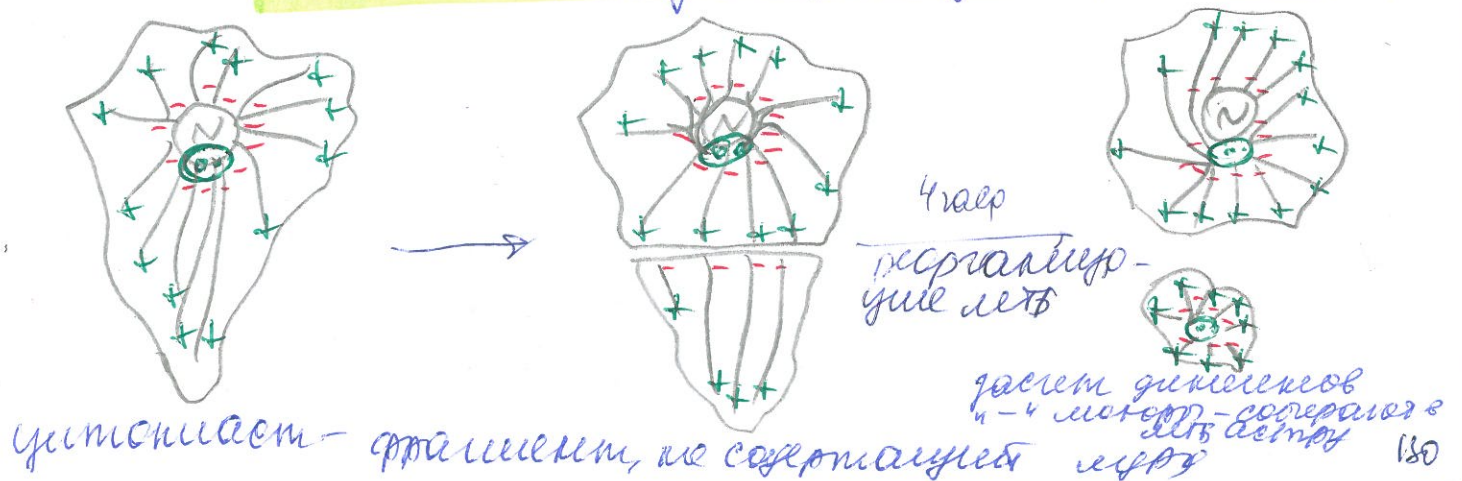 4 часа
реоргализо-
цие мтв
засчет динеинов
"-" моторы - собирают в
мтв астру
цитопласт - фрагмент, не содержащий ядра
130